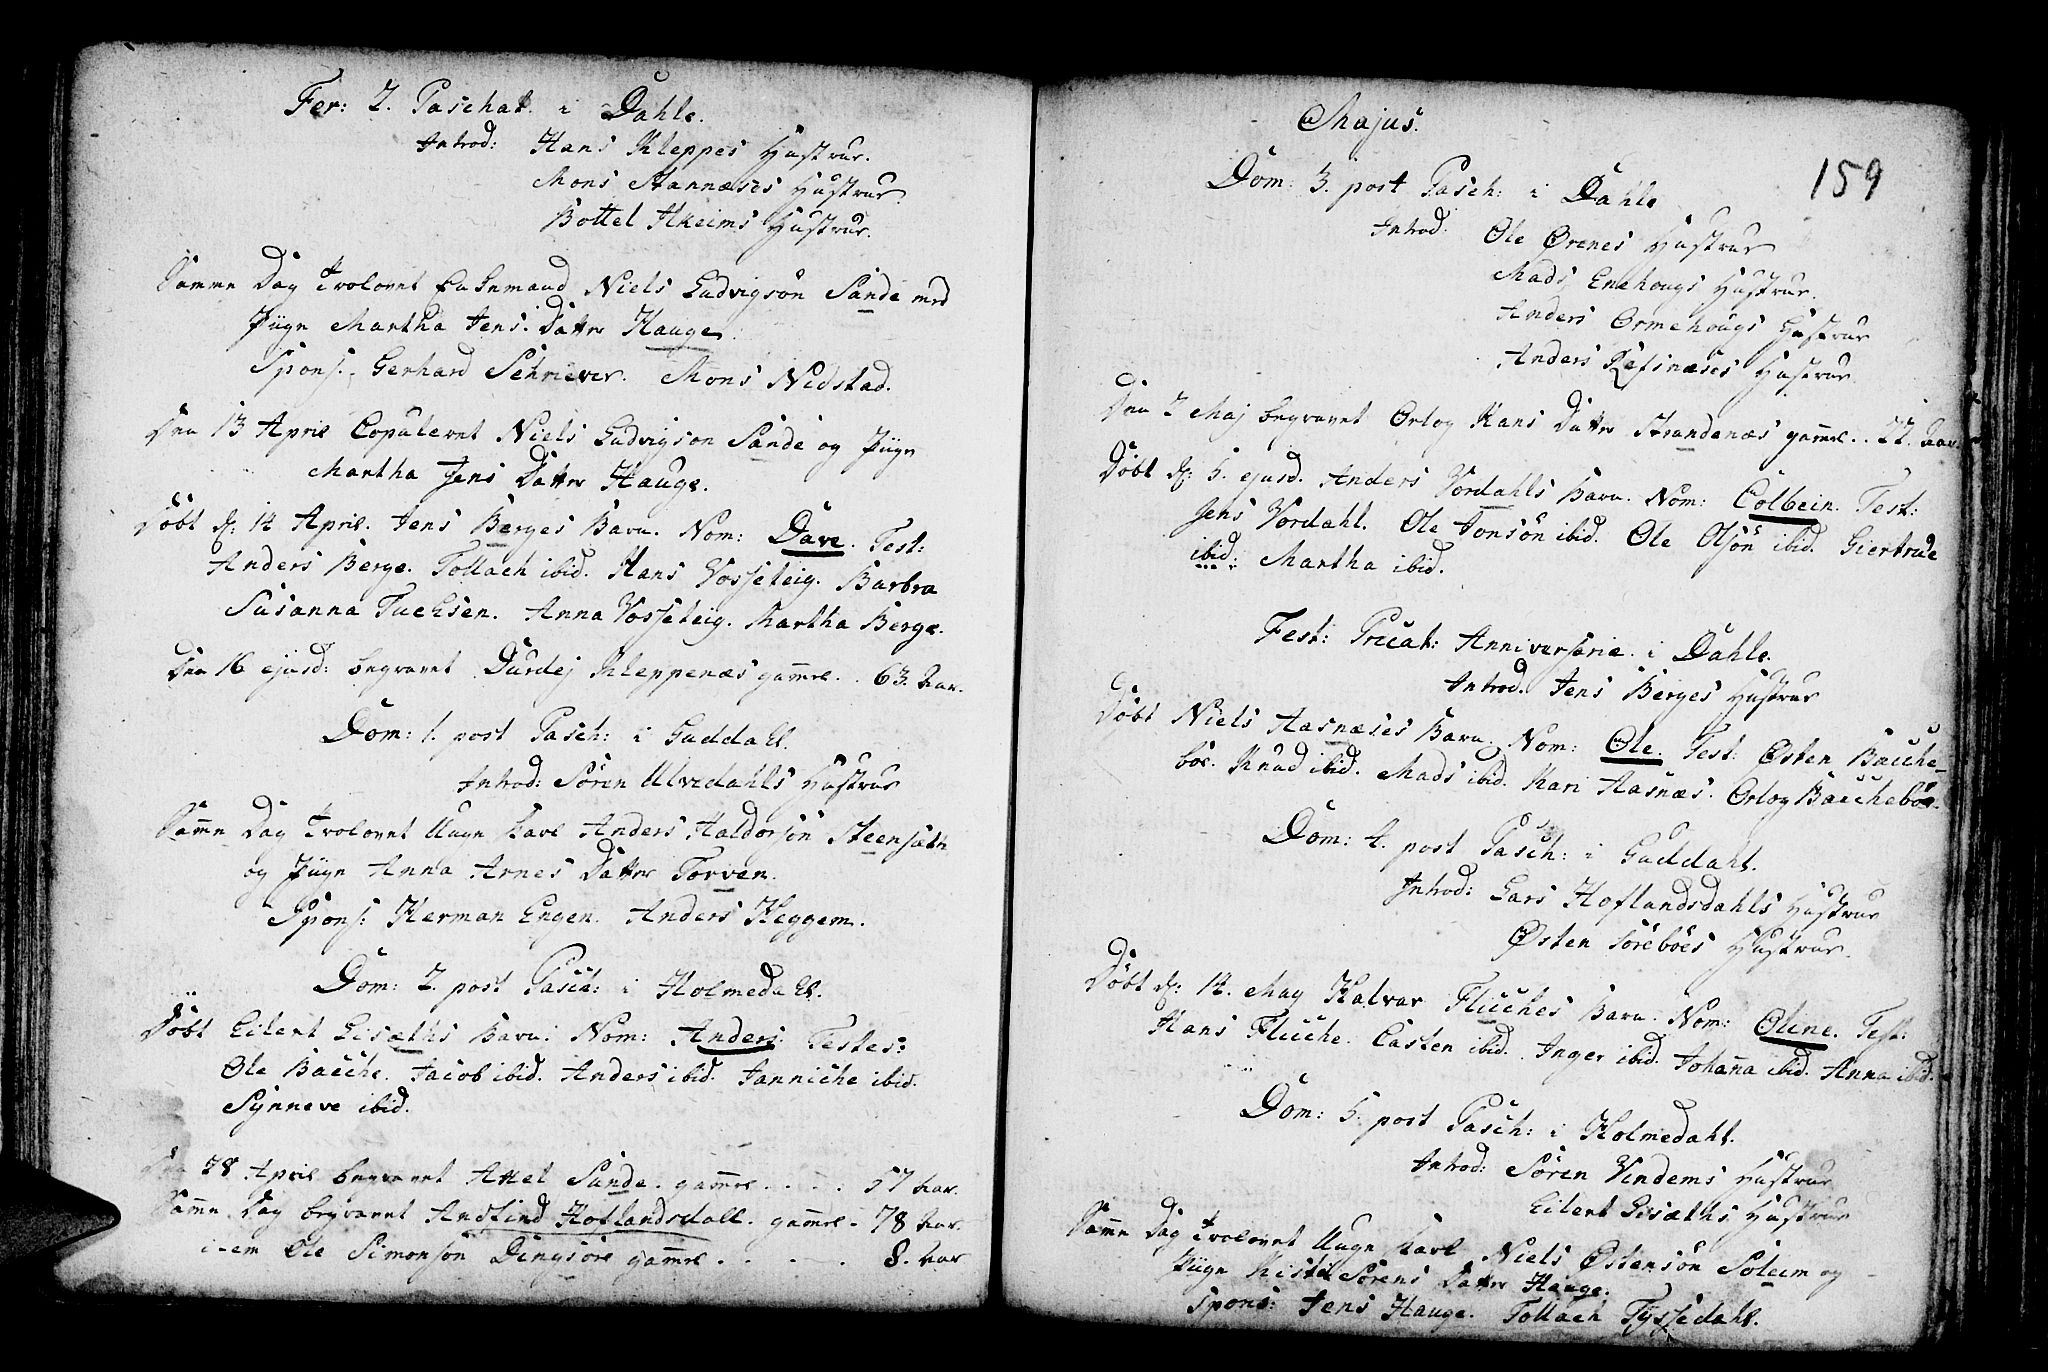 Fer: 2. Paschat. i Dahle.
Introd: Hans Kleppes Hustrue.
Mons Stannæses Hustrue
Bottel Hkeims Hustrue.
Samme Dag Trolovet Enkemand Niels Ludvigsön Sande med
Piige Martha Jens Datter Hauge.
Spons: Gerhard Schriever. Mons Nedstad.
Den 13 April Copuleret Niels Ludvigson Sande og Piige
Martha Jens Datter Hauge.
Döbt d: 14 April. Jens Berges Barn. Nom: Dave. Test:
Anders Berge. Tollach ibid. Hans Vosseteig. Barbra
Susanna Tuchsen. Anna Vosseteig. Martha Berge.
Den 16 ejusd: begravet Durdej Kleppenæs gamel . 63. Aar.
Dom: 1. post Pasch: i Guddahl.
Introd: Sören Ulvedahls Hustrue
Samme Dag Trolovet Unge Karl Anders Haldorsön Steensæth
og Piige Anna Arnes Datter Torven.
Spons: Herman Engen. Anders Heggem.
Dom: 2. post Pasch: i Holmedahl.
Döbt Eilert Gisæths Barn. Nom: Anders. Testes:
Ole Bache. Jacob ibid. Anders ibid. Janniche ibid.
Synneve ibid.
Den 28 April begravet Attel Sande. gammel . . . . 57 Aar.
Samme Dag begravet Andfind Hoflandsdall. gammel - 78 Aar.
item Ole Simonsön Dingsöre gammel . . . . . 8. Aar
Majus.
159
Dom: 3. post Pasch: i Dahle
Introd: Ole Ørenes Hustrue
Mads Enehougs Hustrue.
Anders Ormehougs Hustrue
Anders Refsnæses Hustrue
Den 2 Maj begravet Orlog Hans Datter Strandenæs gammel . . 22. Aar
Döbt d: 5. ejusd. Anders Vordahls Barn. Nom: Colbein. Test:
Jens Vordahl. Ole Jonsön ibid. Ole Olsön ibid. Giertrude
ibid. Martha ibid.
Fest: Precat: Anniversarie i Dahle.
Introd. Jens Berges Hustrue
Döbt Niels Aasnæses Barn. Nom: Ole. Test: Østen Bache-
böe. Knud ibid. Mads ibid. Kari Aasnæs. Orlog Bacheböe.
Dom: 4. post Pasch: i Guddahl.
Introd: Lars Hoflandsdahls Hustrue
Østen Söreböes Hustrue.
Döbt d: 14. May Halvar Fluches Barn. Nom: Oline. Test:
Hans Fluche. Casten ibid. Inger ibid. Johanna ibid. Anna ibid.
Dom: 5. post Pasch: i Holmedahl.
Introd: Sören Vindems Hustrue
Eilert Gisæths Hustrue
Samme Dag Trolovet Unge Karl Niels Østensön Soleim og
Piige Kisti Sörens Datter Hauge.
Spons: Jens Hauge. Tollach Tyssedahl.